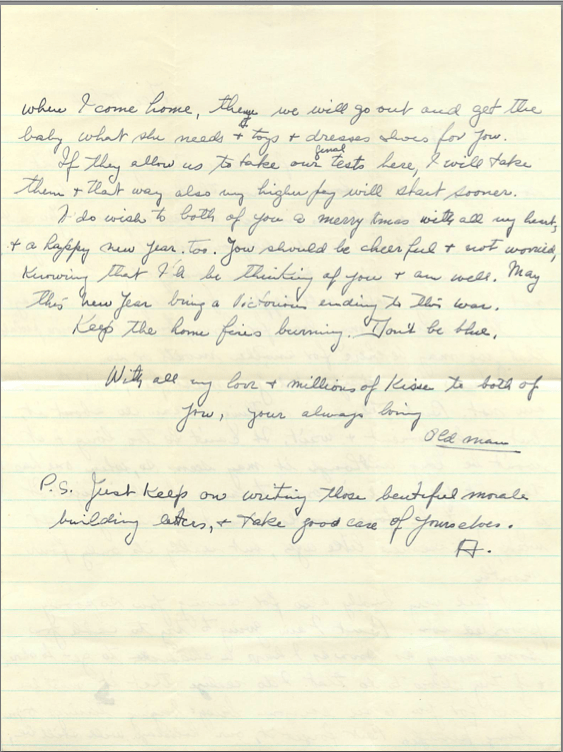 when I come home, then we will go out and get the
baby what she needs + toys + dresses shoes for you.
If they allow us to take our final tests here, I will take
them + that way also my higher pay will start sooner.
I do wish to both of you a merry xmas with all my heart,
+ a happy new year. too. You should be cheerful + not worried,
knowing that I'll be thinking of you + am well. May
this new year bring a victorious ending to this war.
Keep the home fires burning. Don't be blue.
With all my love + millions of kisses to both of
you, your always loving
Old man
P.S. Just keep on writing those beuteful morale
building letters, + take good care of yourselves.
A.